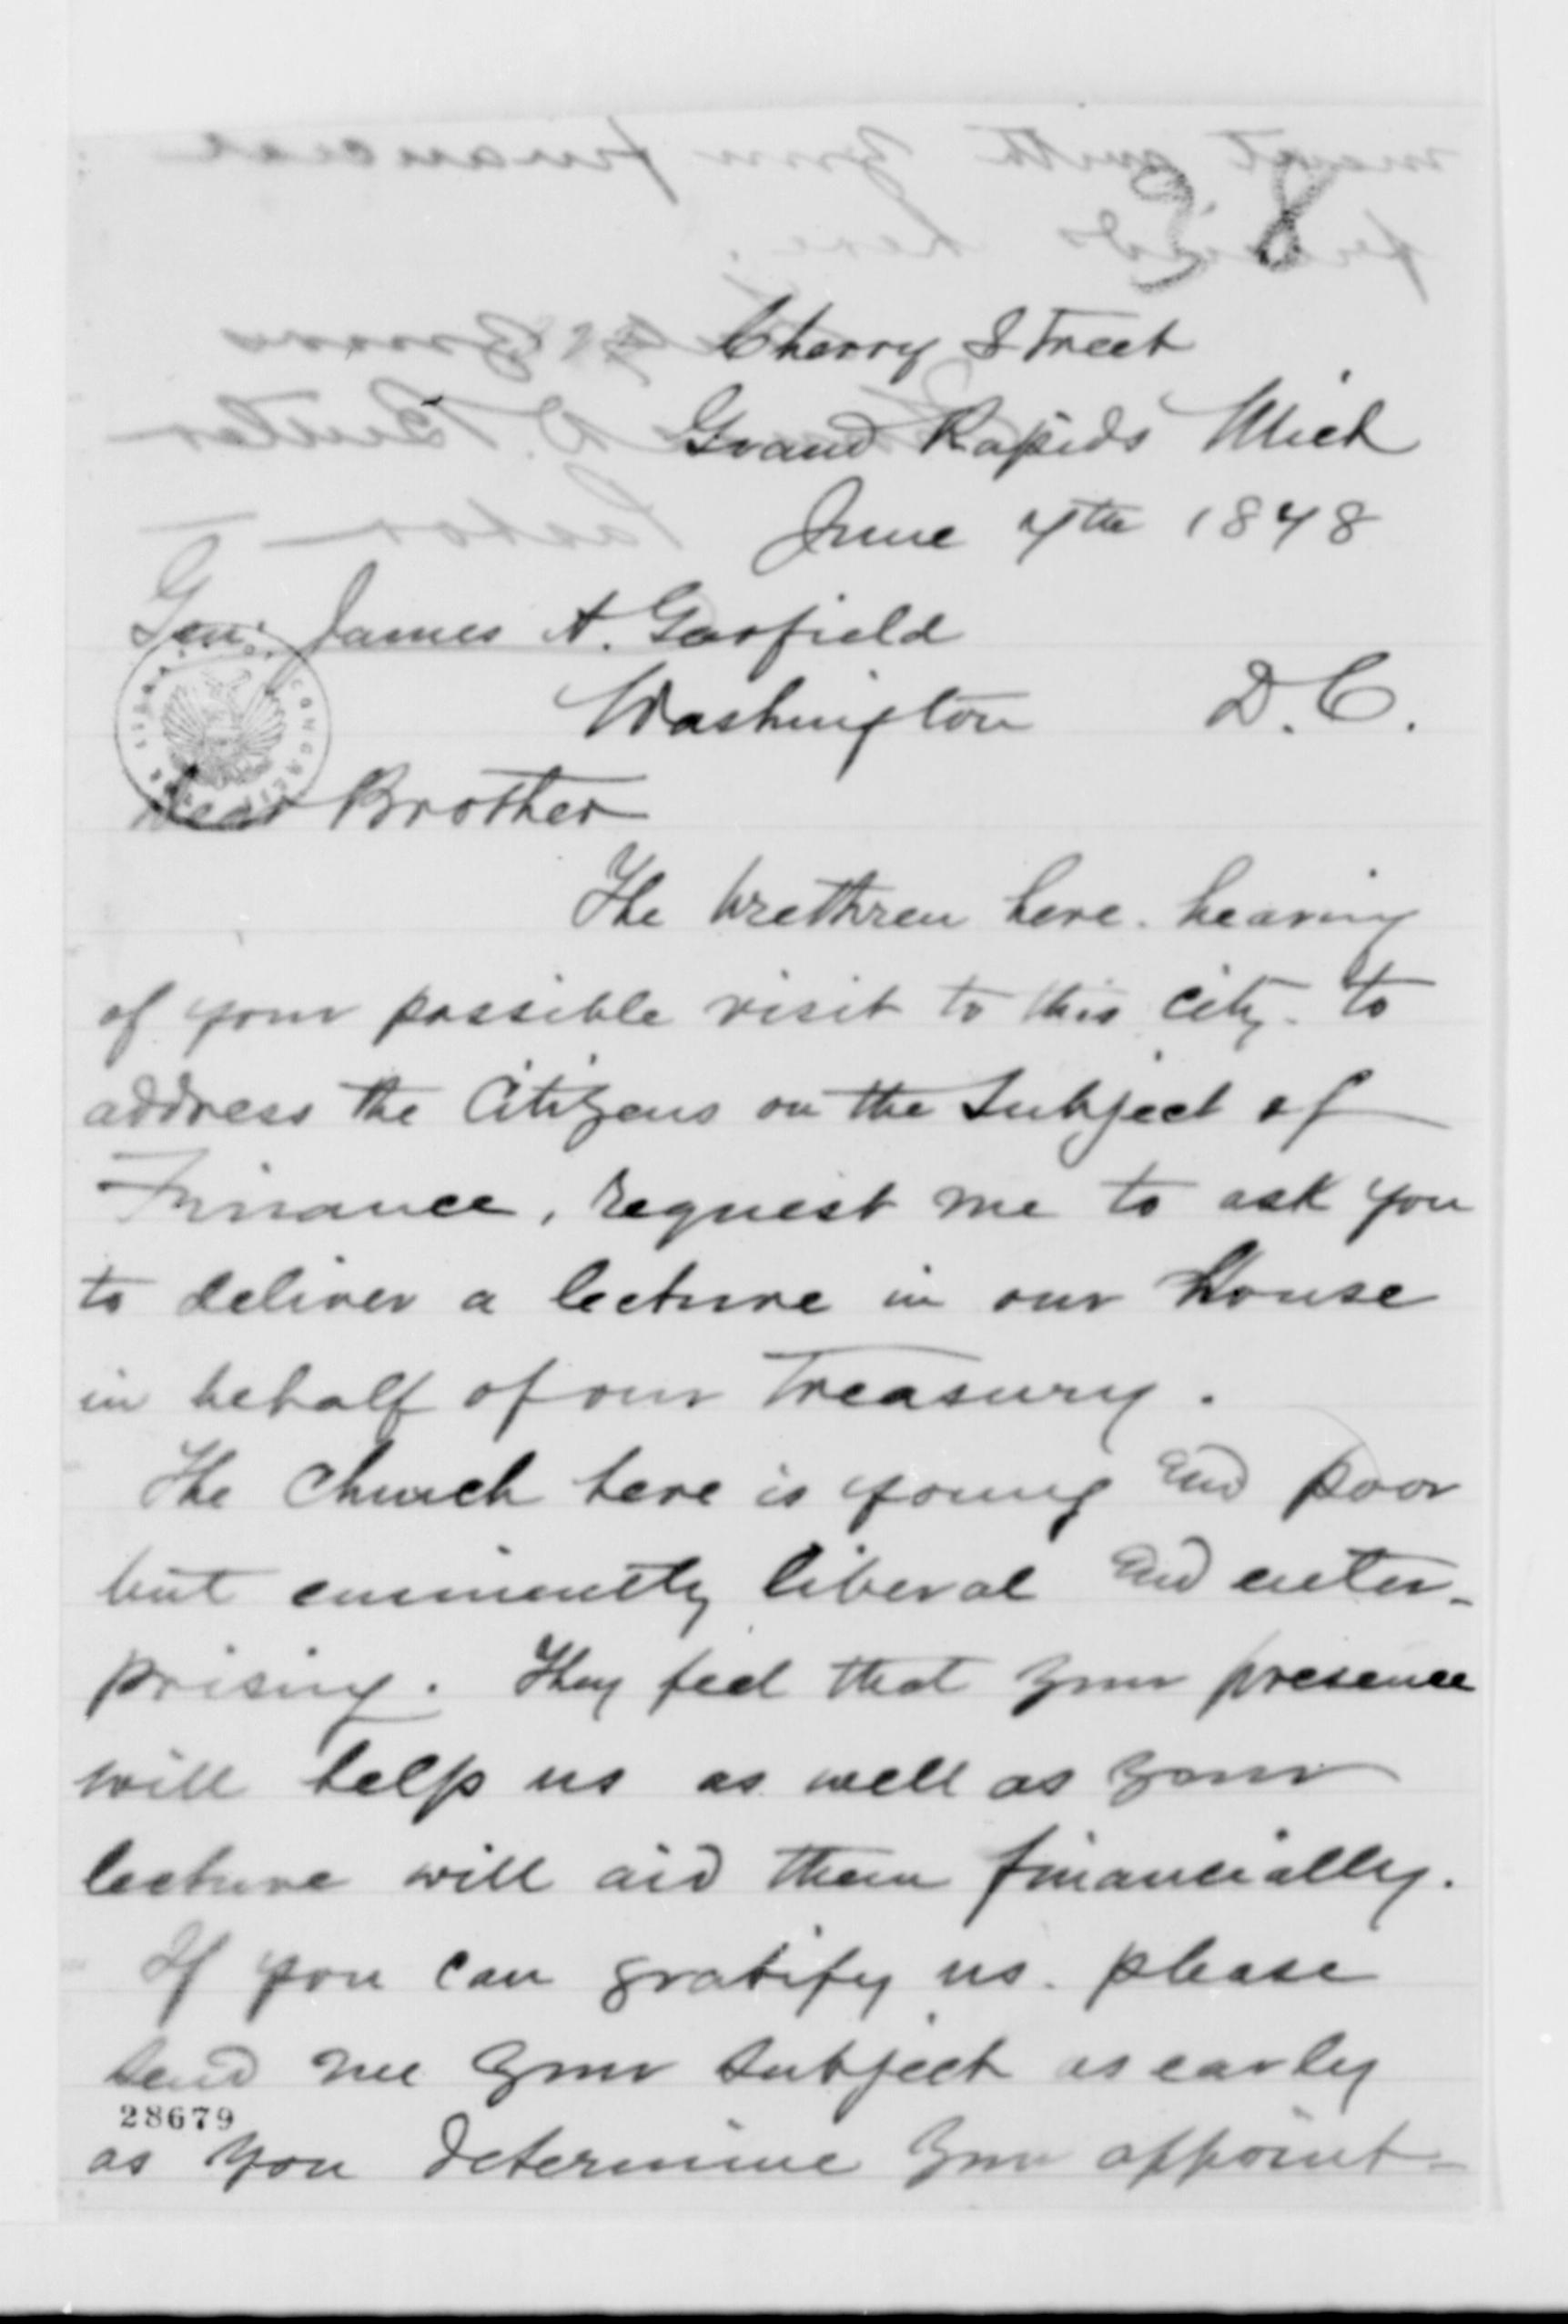 8
Cherry Street
Grand Rapids Mich
June 4th 1878
Gen. James A. Garfield
Washington D.C.
Dear Brother
The brethren here. hearing
of your possible visit to this city. to
address the Citizens on the Subject of
Finance, request me to ask you
to deliver a lecture in our House
in behalf of our Treasury.
The Church here is young and poor
but eminently liberal and enter-
prising. They feel that your presence
will help us as well as your
lecture will aid them financially.
If you can gratify us. please
send me your subject as early
28679
as you determine your appoint-